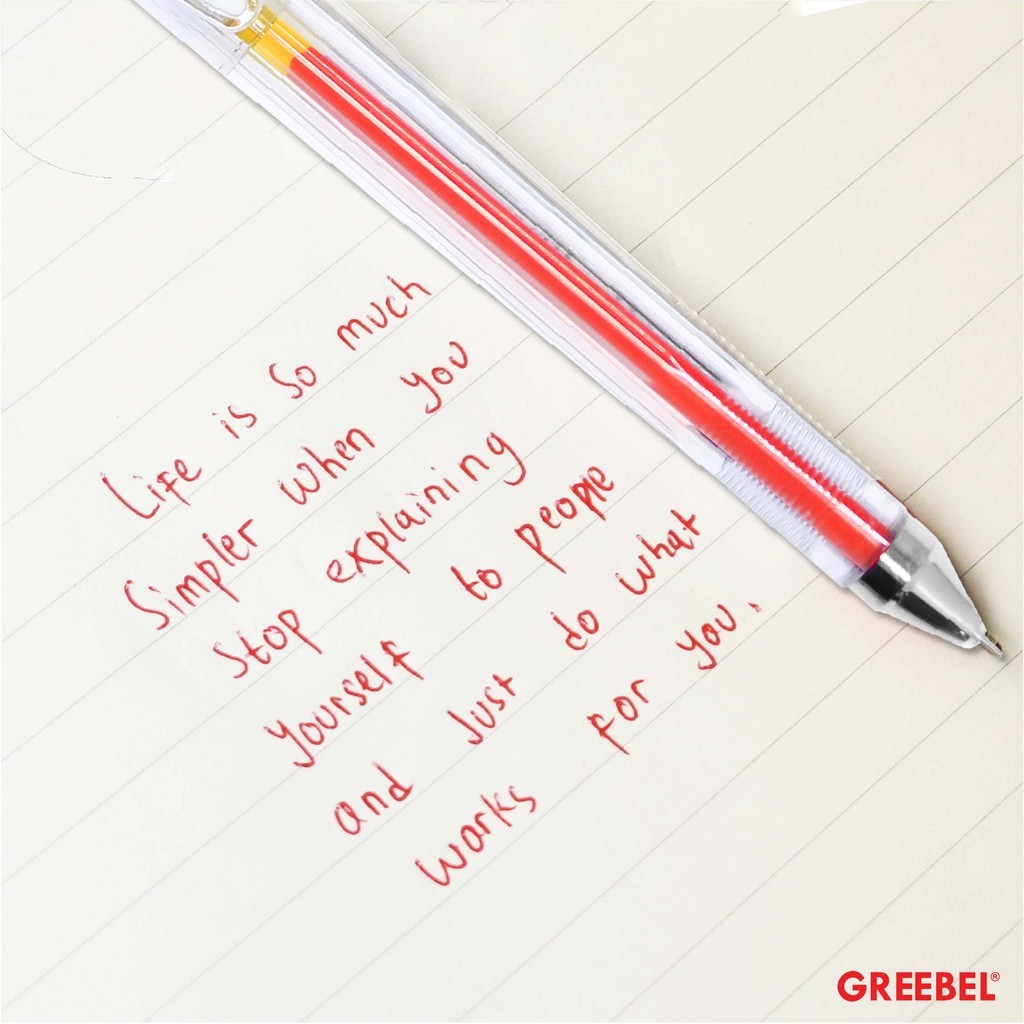 Life is so much
Simpler when you
Stop explaining
yourself to people
and Just do what
works for you.
GREEBEL®